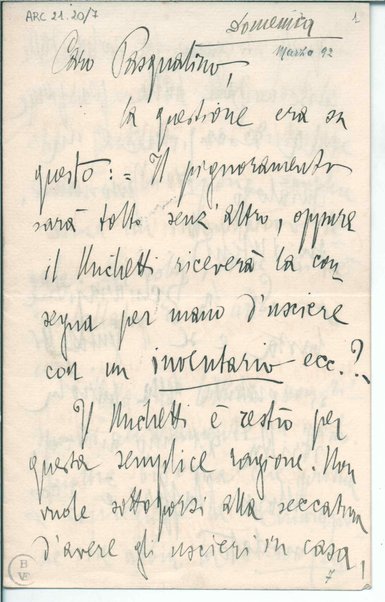 ARC 21.20/7
Domenica
1
Marzo 92
Caro Pasqualino,
la questione era su
questo: = Il pignoramento
sarà tolto senz'altro, oppure
il Michetti riceverà la con-
segna per mano d'usciere
con un inventario ecc.?
Il Michetti è restìo per
questa semplice ragione. Non
vuole sottoporsi alla seccatura
d'avere gli uscieri in casa,
7
BVE